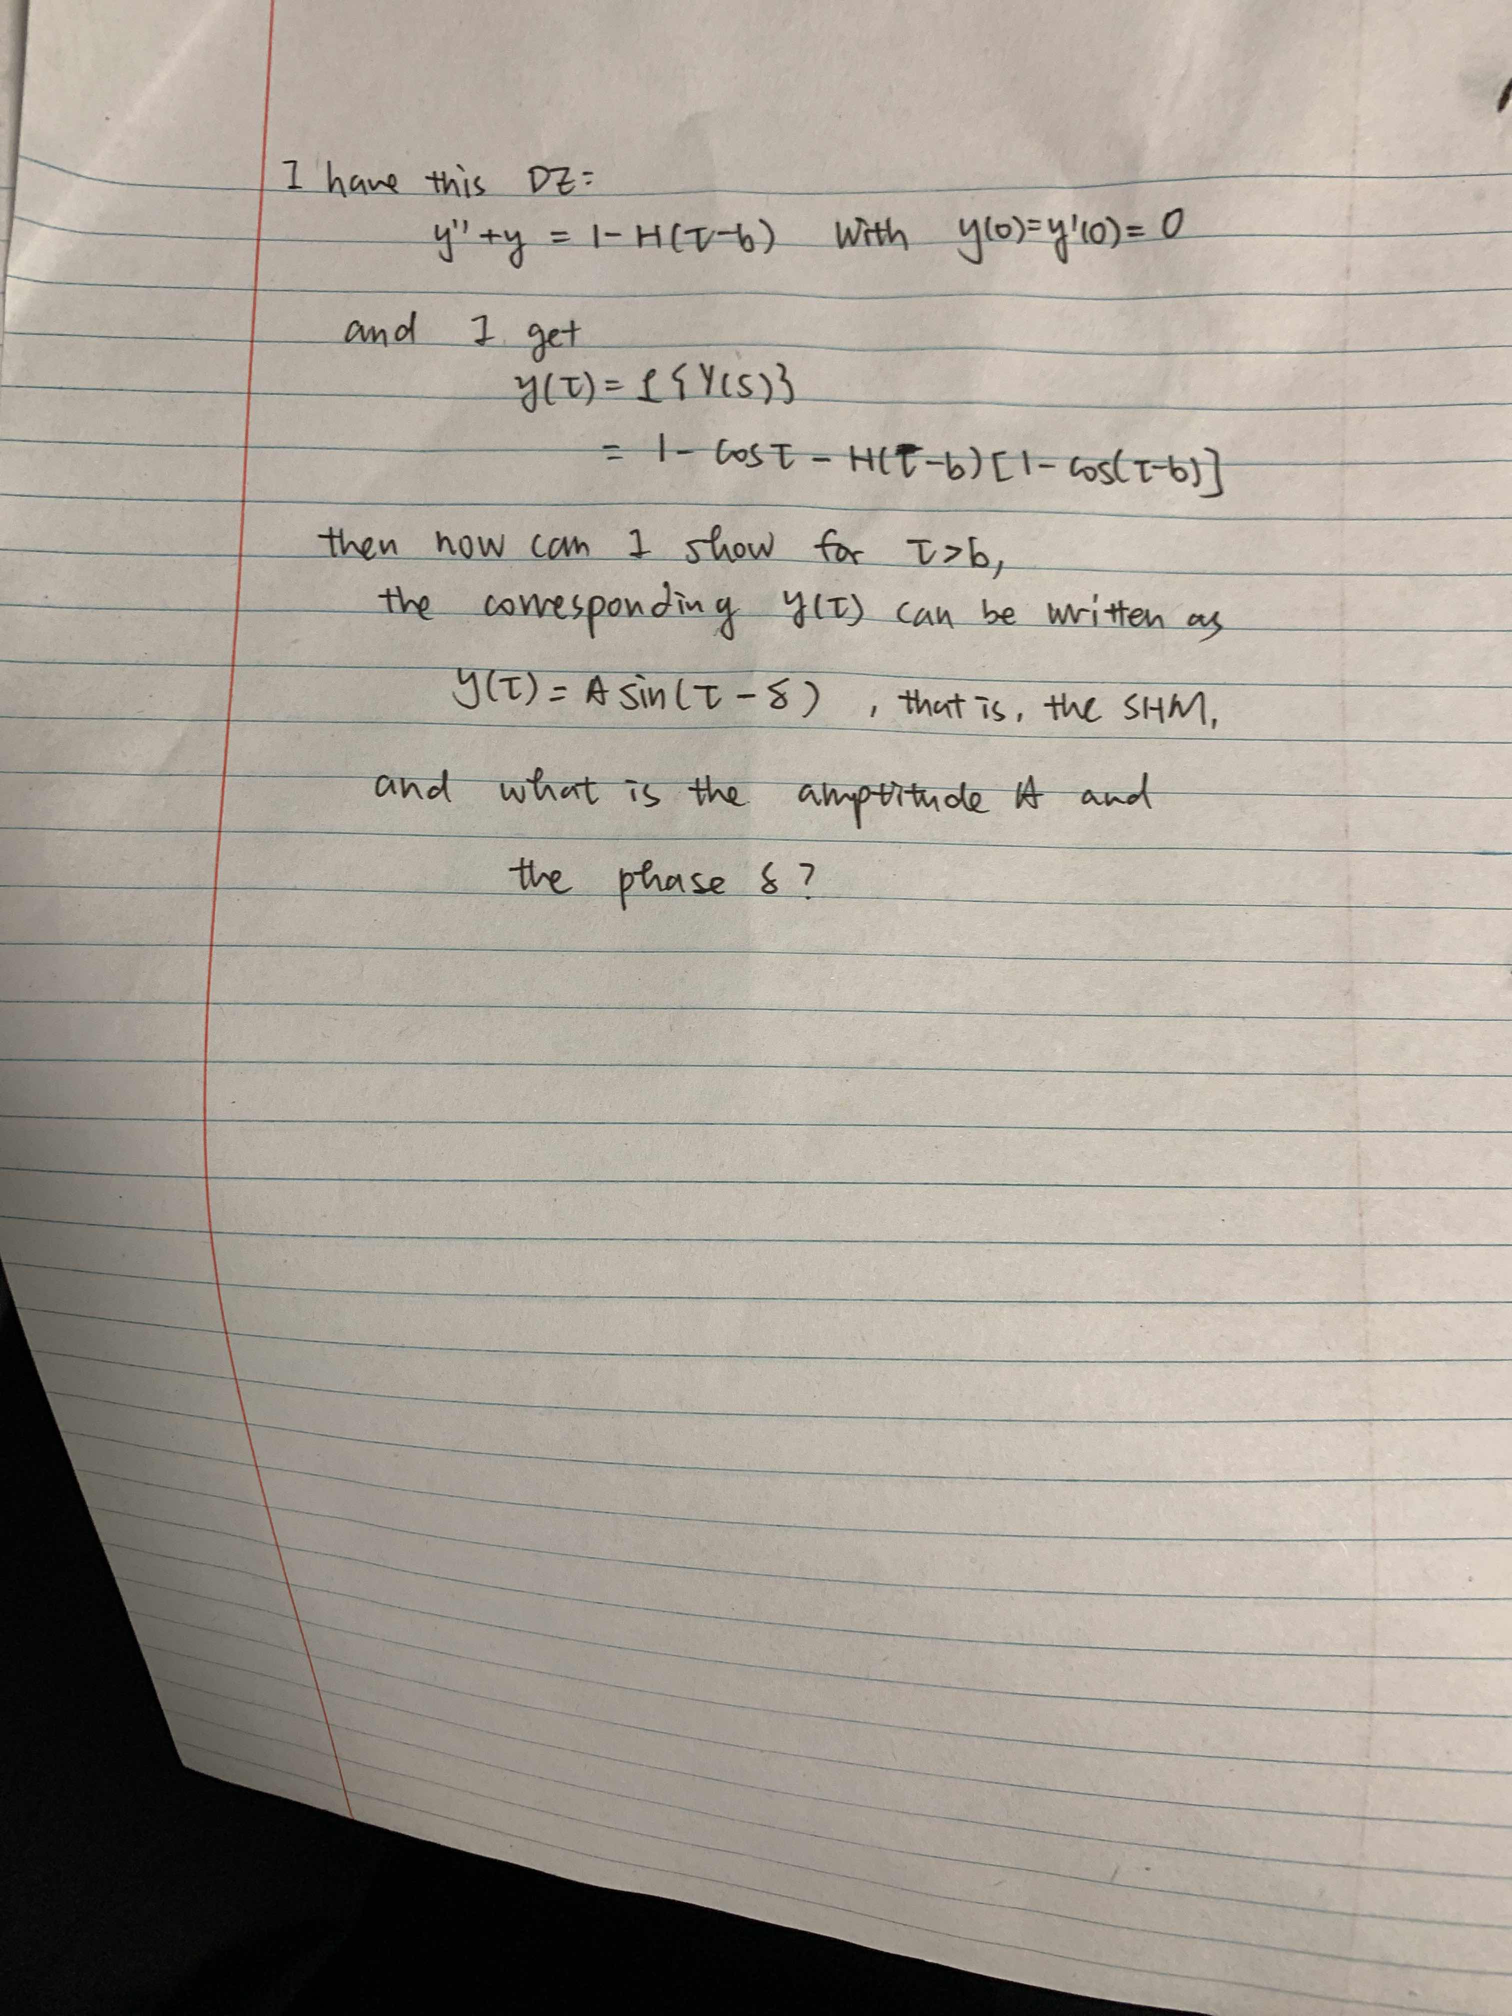 I have this DE:
y''+y = 1-H(τ-b) With y(0)=y'(0)= 0
and I get
y(τ)= ℒ{Y(s)}
= 1- cosτ - H(τ-b)[1- cos(τ-b)]
then how can I show for τ>b,
the corresponding y(τ) can be written as
y(τ)= A sin(τ-δ) , that is, the SHM,
and what is the amptitude A and
the phase δ?